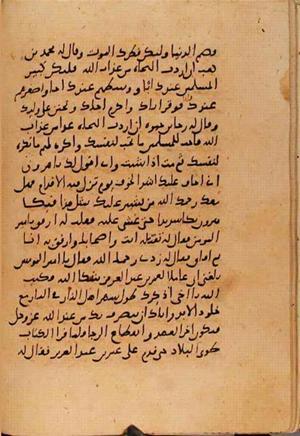 وصم الدنيا وليكن فطرك الموت وقال له محمد بن
كعب ان اردت النجاة من عذاب الله فليكن كبير
المسلمين عندك ابا واوسطهم عندك اخا واصغرهم
عندك فوقر اباك واكرم اخاك وتحنن على ولدك
وقال له رجا بن حيوة ان اردت النجاة غدا من عذاب
الله فاحب للمسلمين ما تحب لنفسك واكره لهم ما تكره
لنفسك ثم مت اذا شئت واني اقول لك يا هرون
اني اخاف عليك اشد الخوف يوم تزل فيه الاقدام فهل
معك رحمك الله من يشير عليك بمثل هذا فبكا
هرون بكا شديدا حتى غشي عليه فقلت له ارفق بامير
المومنين فقال له تقتله انت واصحابك وارفق به انا
ثم افاق فقال له زدني رحمك الله فقال يا امير المومنين
بلغني ان عاملا لعمر بن عبد العزيز شكا اليه فكتب
اليه يا اخي اذكرك طول سهر اهل النار في النار مع
خلود الابد واياك ان ينصرف بك من عند الله عز وجل
فيكون اخر العهد وانقطاع الرجا فلما قرا الكتاب
طوى البلاد حتى قدم على عمر بن عبد العزيز فقال له